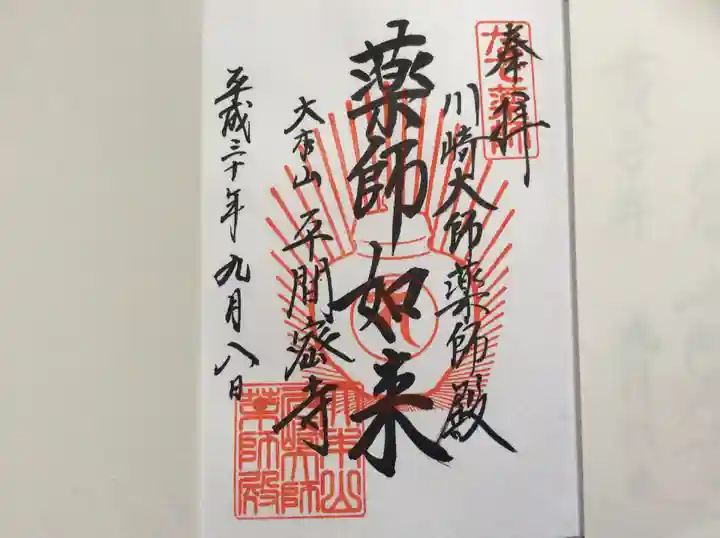 奉拝
川崎大師薬師殿
薬師如来
大本山 平間密寺
平成三十年九月八日
薬師殿